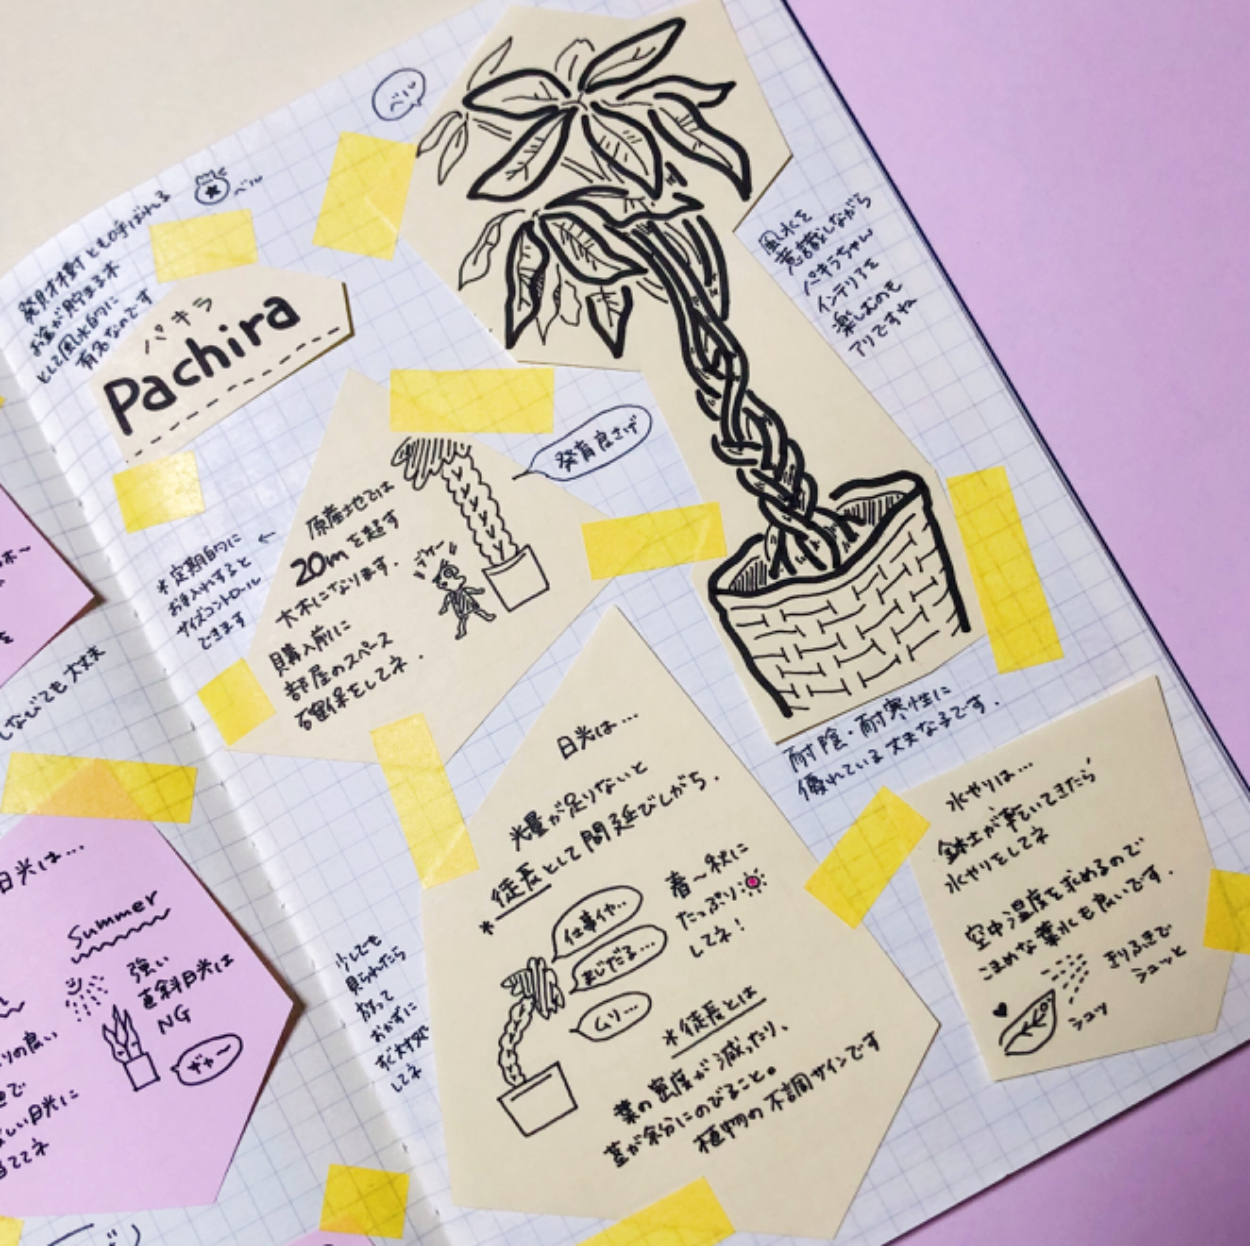 ベル
ベル
発財樹とも呼ばれる
お金が貯まる木
として風水的に
有名なのです
パキラ
Pachira
風水を
意識しながら
パキラちゃん
インテリアを
楽しむのも
アリですね
発育良さげ
原産地では
20mを超す
大木になります.
購入前に
部屋のスペース
確保をしてネ.
*定期的に
お手入れすると
サイズコントロール
できます
耐陰・耐寒性に
優れている丈夫な子です.
日光は…
光量が足りないと
*徒長として間延びしがち.
春〜秋に
たっぷり
してネ!
仕事イヤ..
まじだる…
ムリ…
少しでも
見られたら
放って
おかずに
対処
してネ
*徒長とは
葉の密度が減ったり、
茎が余分にのびること。
植物の不調サインです
水やりは…
鉢土が乾いてきたら
水やりをしてネ
空中湿度を求めるので
こまめな葉水も良いです.
きりふきで
シュッと
シュッ
しなびても大丈夫
日光は…
Summer
強い
直射日光は
NG
ギャー
りの良い
しい日光に
当ててネ